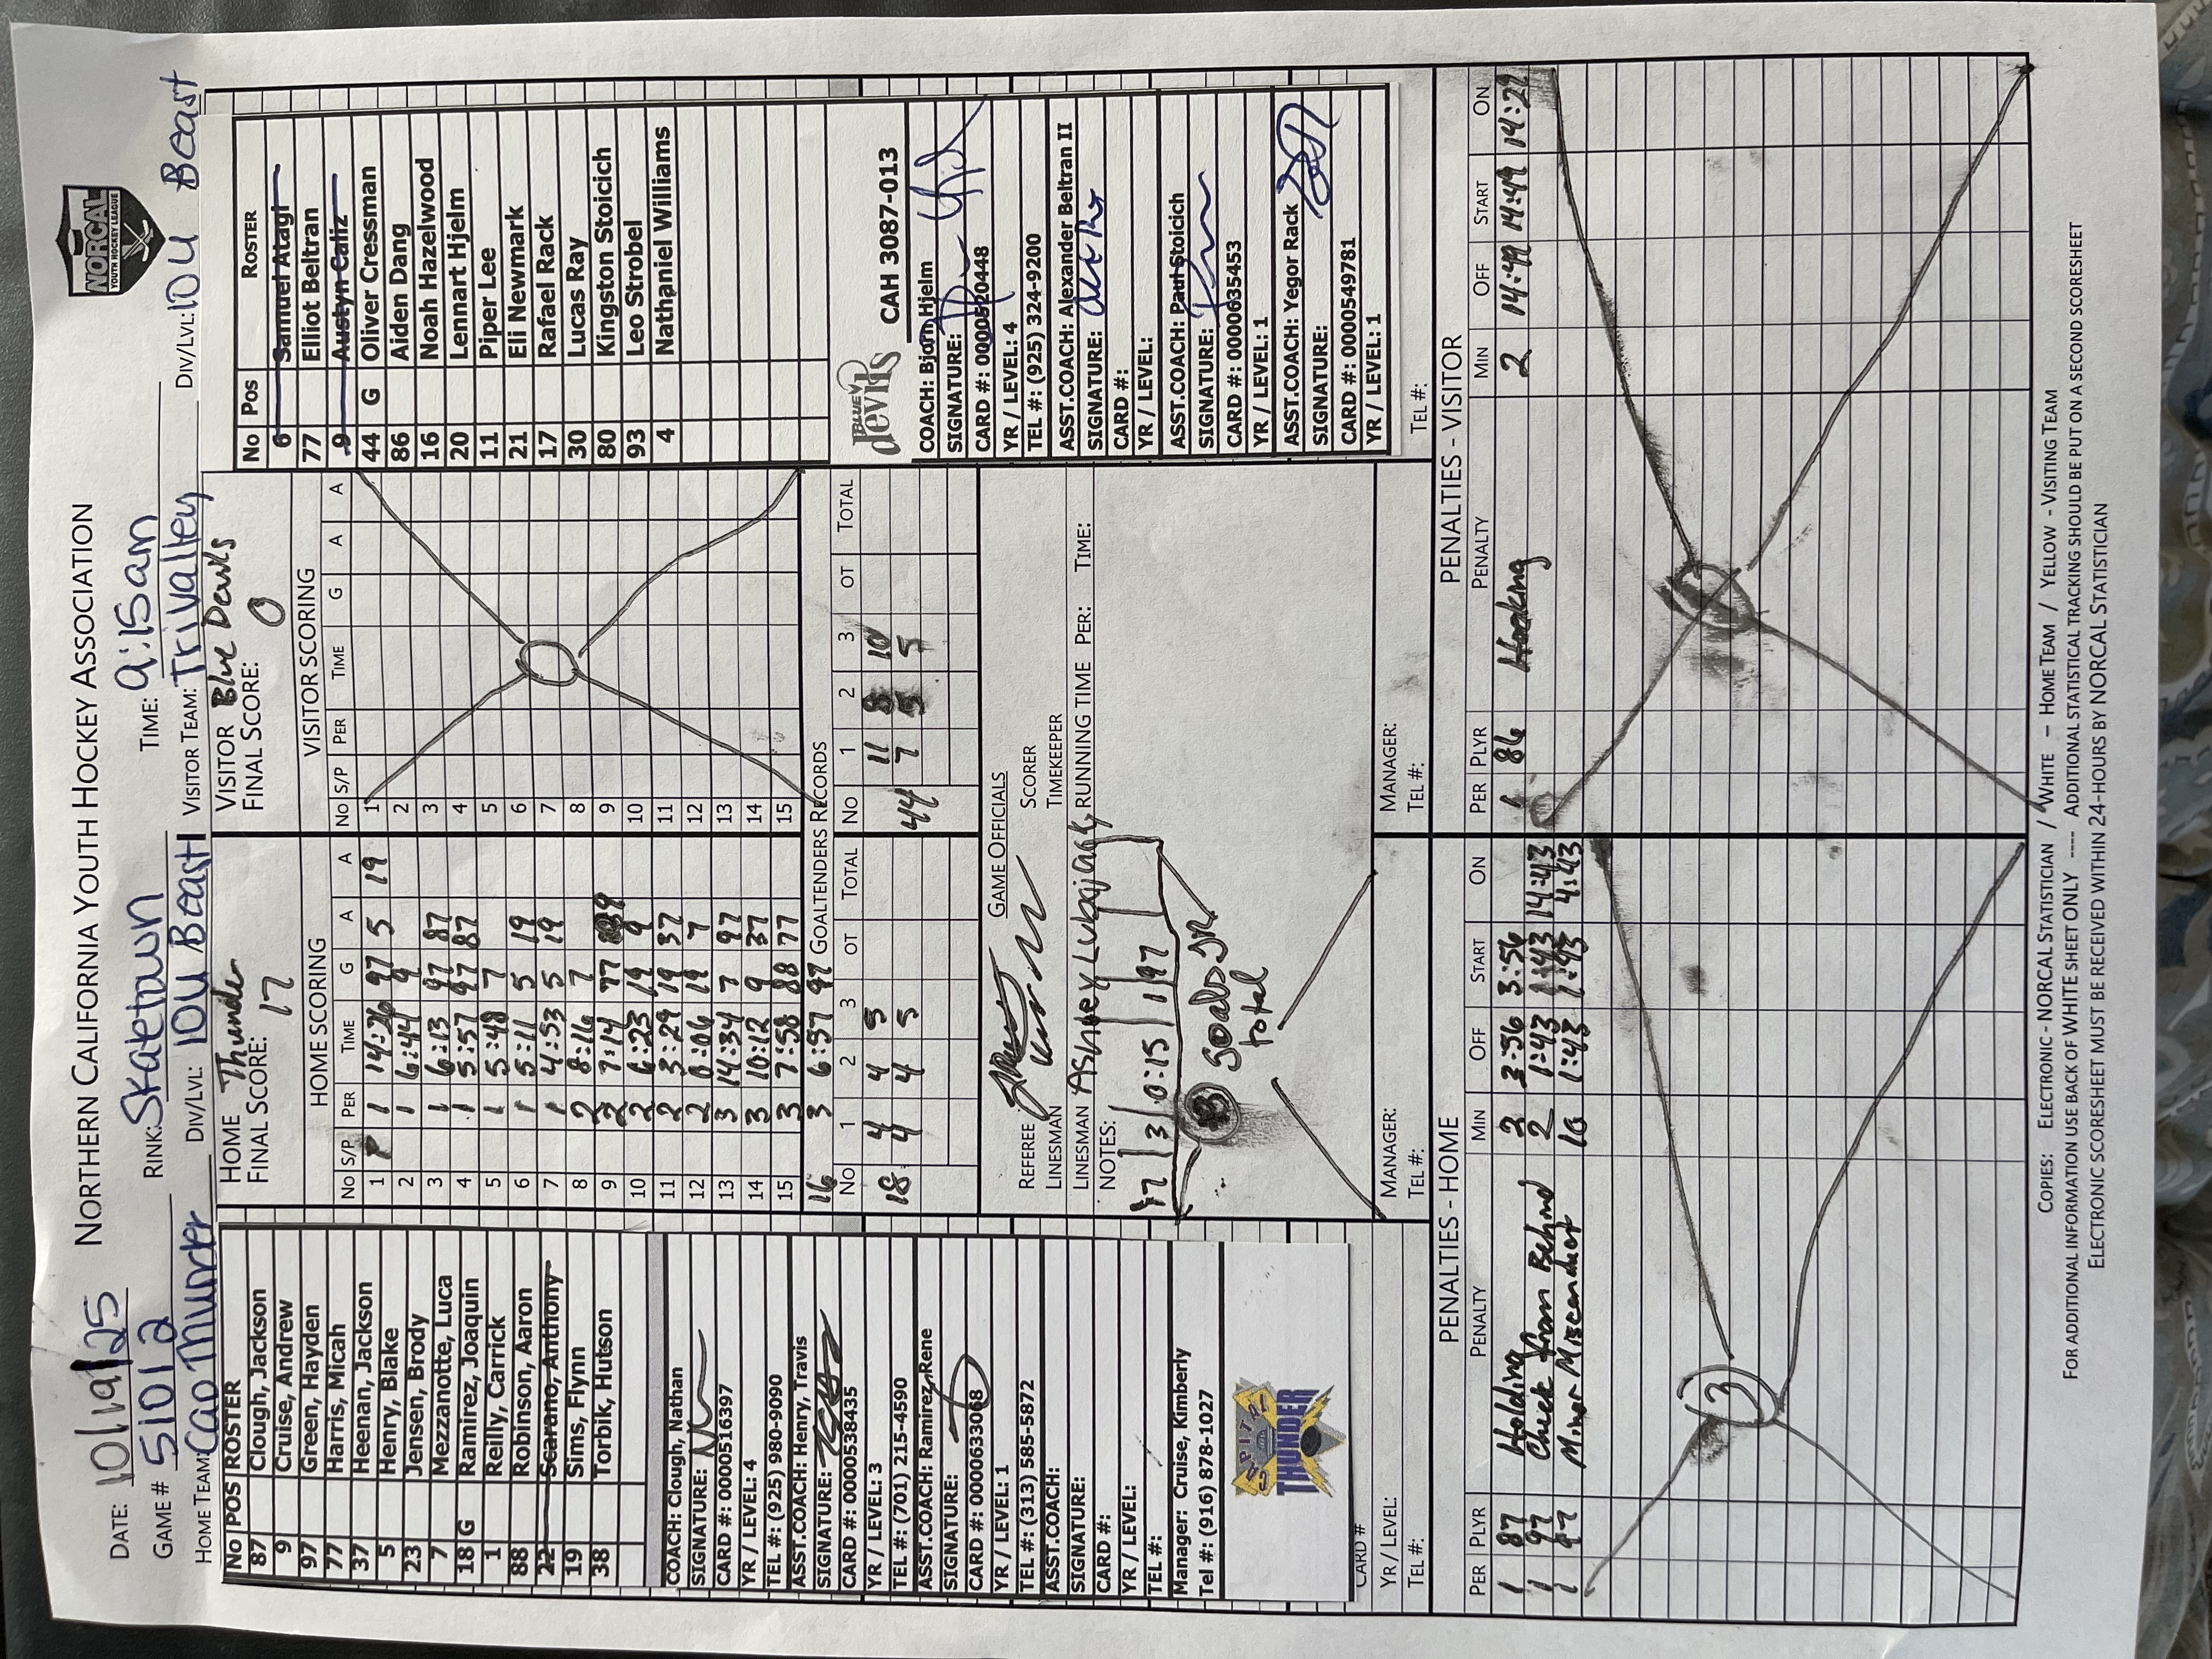 NORTHERN CALIFORNIA YOUTH HOCKEY ASSOCIATION
NORCAL
YOUTH HOCKEY LEAGUE
DATE: 10/19/25
GAME # 51012 RINK: Skatetown TIME: 9:15am
HOME TEAM: Cap Thunder DIV/LVL: 10U Beast VISITOR TEAM: Trivalley DIV/LVL: 10U Beast
No POS ROSTER
87 Clough, Jackson
9 Cruise, Andrew
97 Green, Hayden
77 Harris, Micah
37 Heenan, Jackson
5 Henry, Blake
23 Jensen, Brody
7 Mezzanotte, Luca
18 G Ramirez, Joaquin
1 Reilly, Carrick
88 Robinson, Aaron
22 Scarano, Anthony
19 Sims, Flynn
38 Torbik, Hutson
COACH: Clough, Nathan
SIGNATURE:
CARD #: 0000516397
YR / LEVEL: 4
TEL #: (925) 980-9090
ASST.COACH: Henry, Travis
SIGNATURE:
CARD #: 0000538435
YR / LEVEL: 3
TEL #: (701) 215-4590
ASST.COACH: Ramirez, Rene
SIGNATURE:
CARD #: 0000633068
YR / LEVEL: 1
TEL #: (313) 585-5872
ASST.COACH:
SIGNATURE:
CARD #:
YR / LEVEL:
TEL #:
Manager: Cruise, Kimberly
Tel #: (916) 878-1027
CAPITAL
THUNDER
CARD #
YR / LEVEL:
TEL #:
HOME Thunder
FINAL SCORE: 17
HOME SCORING
No S/P PER TIME G A A
1 P 1 14:26 97 5 19
2 1 6:44 9
3 1 6:13 97 87
4 1 5:57 97 87
5 1 5:48 7
6 1 5:11 5 19
7 1 4:53 5 19
8 2 8:16 7
9 2 7:14 77
10 2 6:23 19 9
11 2 3:29 19 37
12 2 0:06 19 7
13 3 14:34 7 97
14 3 10:12 9 37
15 3 7:58 88 77
16 3 6:57 97
VISITOR Blue Devils
FINAL SCORE: 0
VISITOR SCORING
No S/P PER TIME G A A
1
2
3
4
5
6
7
8
9
10
11
12
13
14
15
0
GOALTENDERS RECORDS
No 1 2 3 OT TOTAL No 1 2 3 OT TOTAL
18 4 4 5 11 8 10
4 4 5 44 7 5 5
GAME OFFICIALS
REFEREE SCORER
LINESMAN TIMEKEEPER
LINESMAN Ashley RUNNING TIME PER: TIME:
NOTES:
17 3 0:15 1 97
goals
total
MANAGER:
TEL #:
MANAGER:
TEL #:
No Pos ROSTER
6 Samuel Atagi
77 Elliot Beltran
9 Austyn Caliz
44 G Oliver Cressman
86 Aiden Dang
16 Noah Hazelwood
20 Lennart Hjelm
11 Piper Lee
21 Eli Newmark
17 Rafael Rack
30 Lucas Ray
80 Kingston Stoicich
93 Leo Strobel
4 Nathaniel Williams
BLUE devils CAH 3087-013
COACH: Bjorn Hjelm
SIGNATURE:
CARD #: 0000520448
YR / LEVEL: 4
TEL #: (925) 324-9200
ASST.COACH: Alexander Beltran II
SIGNATURE:
CARD #:
YR / LEVEL:
ASST.COACH: Paul Stoicich
SIGNATURE:
CARD #: 0000635453
YR / LEVEL: 1
ASST.COACH: Yegor Rack
SIGNATURE:
CARD #: 0000549781
YR / LEVEL: 1
TEL #:
PENALTIES - HOME
PER PLYR PENALTY MIN OFF START ON
1 87 Holding 2 3:56 3:56
1 97 Check From Behind 2 1:43 1:43 14:43
1 97 Minor Misconduct 10 1:43 1:43 4:43
3
PENALTIES - VISITOR
PER PLYR PENALTY MIN OFF START ON
1 86 Hooking 2 14:49 14:49 14:29
COPIES: ELECTRONIC - NORCAL STATISTICIAN / WHITE – HOME TEAM / YELLOW - VISITING TEAM
FOR ADDITIONAL INFORMATION USE BACK OF WHITE SHEET ONLY ---- ADDITIONAL STATISTICAL TRACKING SHOULD BE PUT ON A SECOND SCORESHEET
ELECTRONIC SCORESHEET MUST BE RECEIVED WITHIN 24-HOURS BY NORCAL STATISTICIAN